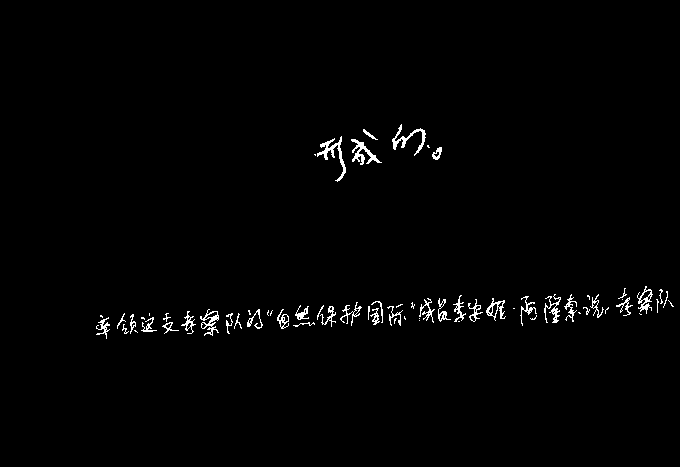 形成的。
率领这支考察队的“自然保护国际”成员李安妮·阿隆索说,考察队